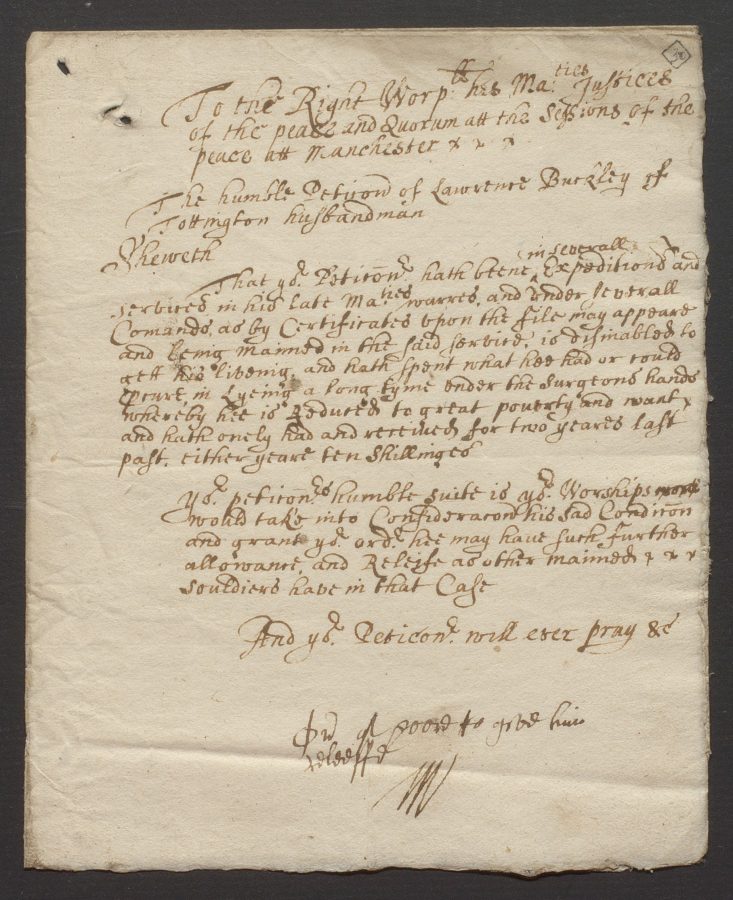 To the Right Worp.ll his Ma:ties Justices
of the peace and Quorum att the Sessions of the
peace att Manchester x x x
The humble Peticon of Lawrence Buckley of
Tottington husbandman
Sheweth
That yor. Peticonr. hath beene in severall Expeditions and
services in his late Ma:ties warres, and under severall
Comands, as by Certificates upon the file may appeare
and being maimed in the said service, is dismabled to
gett his liveing, and hath spent what hee had or could
pcure, in Lyeing a long tyme under the Surgeons hands
whereby hee is Reduced to great poverty and want x
and hath onely had and received for two yeares last
past, either yeare ten shillinges
Yor. peticonrs. humble suite is yor. Worships
would take into Consideracon his sad Condicon
and grant yor. ordr. hee may have such further
allowance, and Releife as other maimed x x x
souldiers have in that Case
And yor. Peticonr. will ever pray &c
poore to give him
releeffe